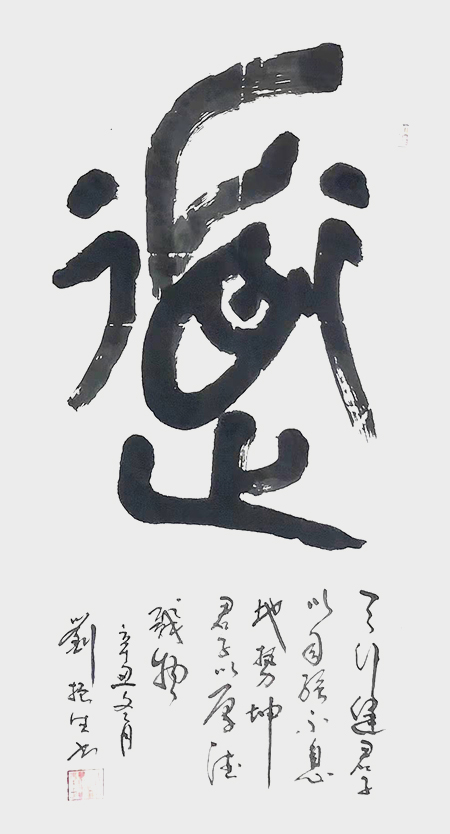 天行健君子
以自强不息
地勢坤
君子以厚德
載物
辛丑 月
劉 生书